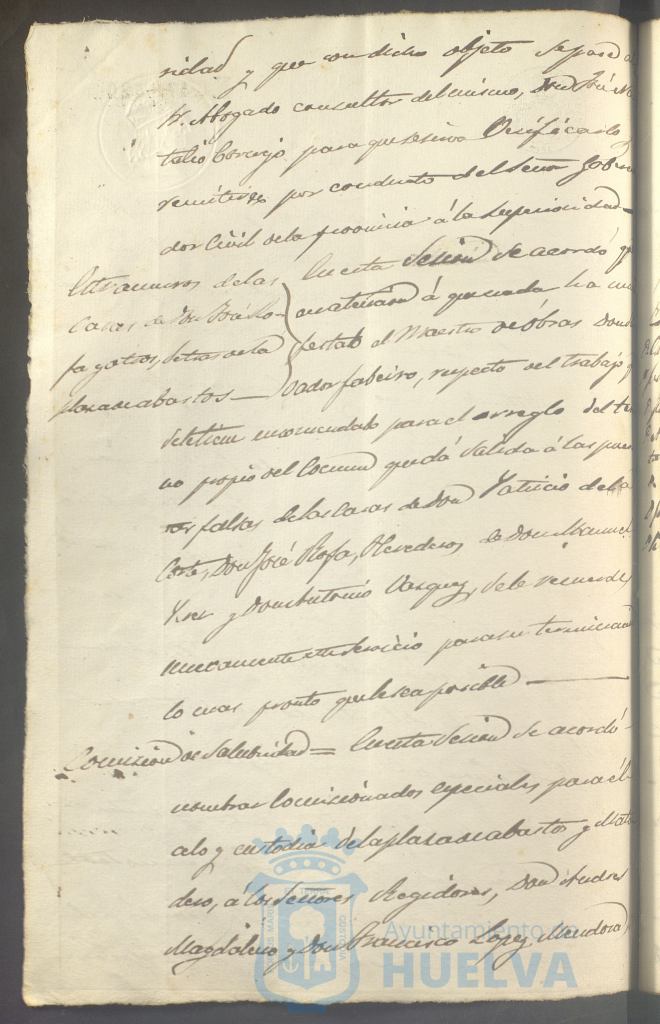 sidad y que con dicho objeto se pase al
Sr. Abogado consultor del mismo, Don José
talio Cornejo para que se sirva Verificarlo y
remitirlo por conducto del Señor Gober
dor Civil de la provincia á la Superioridad
Otra acuerdo de las
casas de Don José Ro-
fa y otros, detras de la
plaza de abastos —
En esta Sesion Se acordó que
en atencion á que nada ha ma
festado el Maestro de Obras Don
vador fabeiro, respecto del trabajo q
se le tiene encomendado para el arreglo del te
no propio del Comun que dá Salida á las puer
tas falsas de las Casas de Don Patricio de la
Corte, Don José Rofa, Herederos de Don Manuel
y Don Antonio Vazquez, se le recuerde
nuevamente este Servicio para su terminacion
lo mas pronto que le sea posible —
Comision de Salubridad = En esta Sesion Se acordó
nombrar Comisionados especiales para el
alo y custodia de la plaza de abastos y Mata
dero, á los Señores Regidores, Don Andres
Magdaleno y Don Francisco Lopez Mendoza
Ayuntamiento de
HUELVA